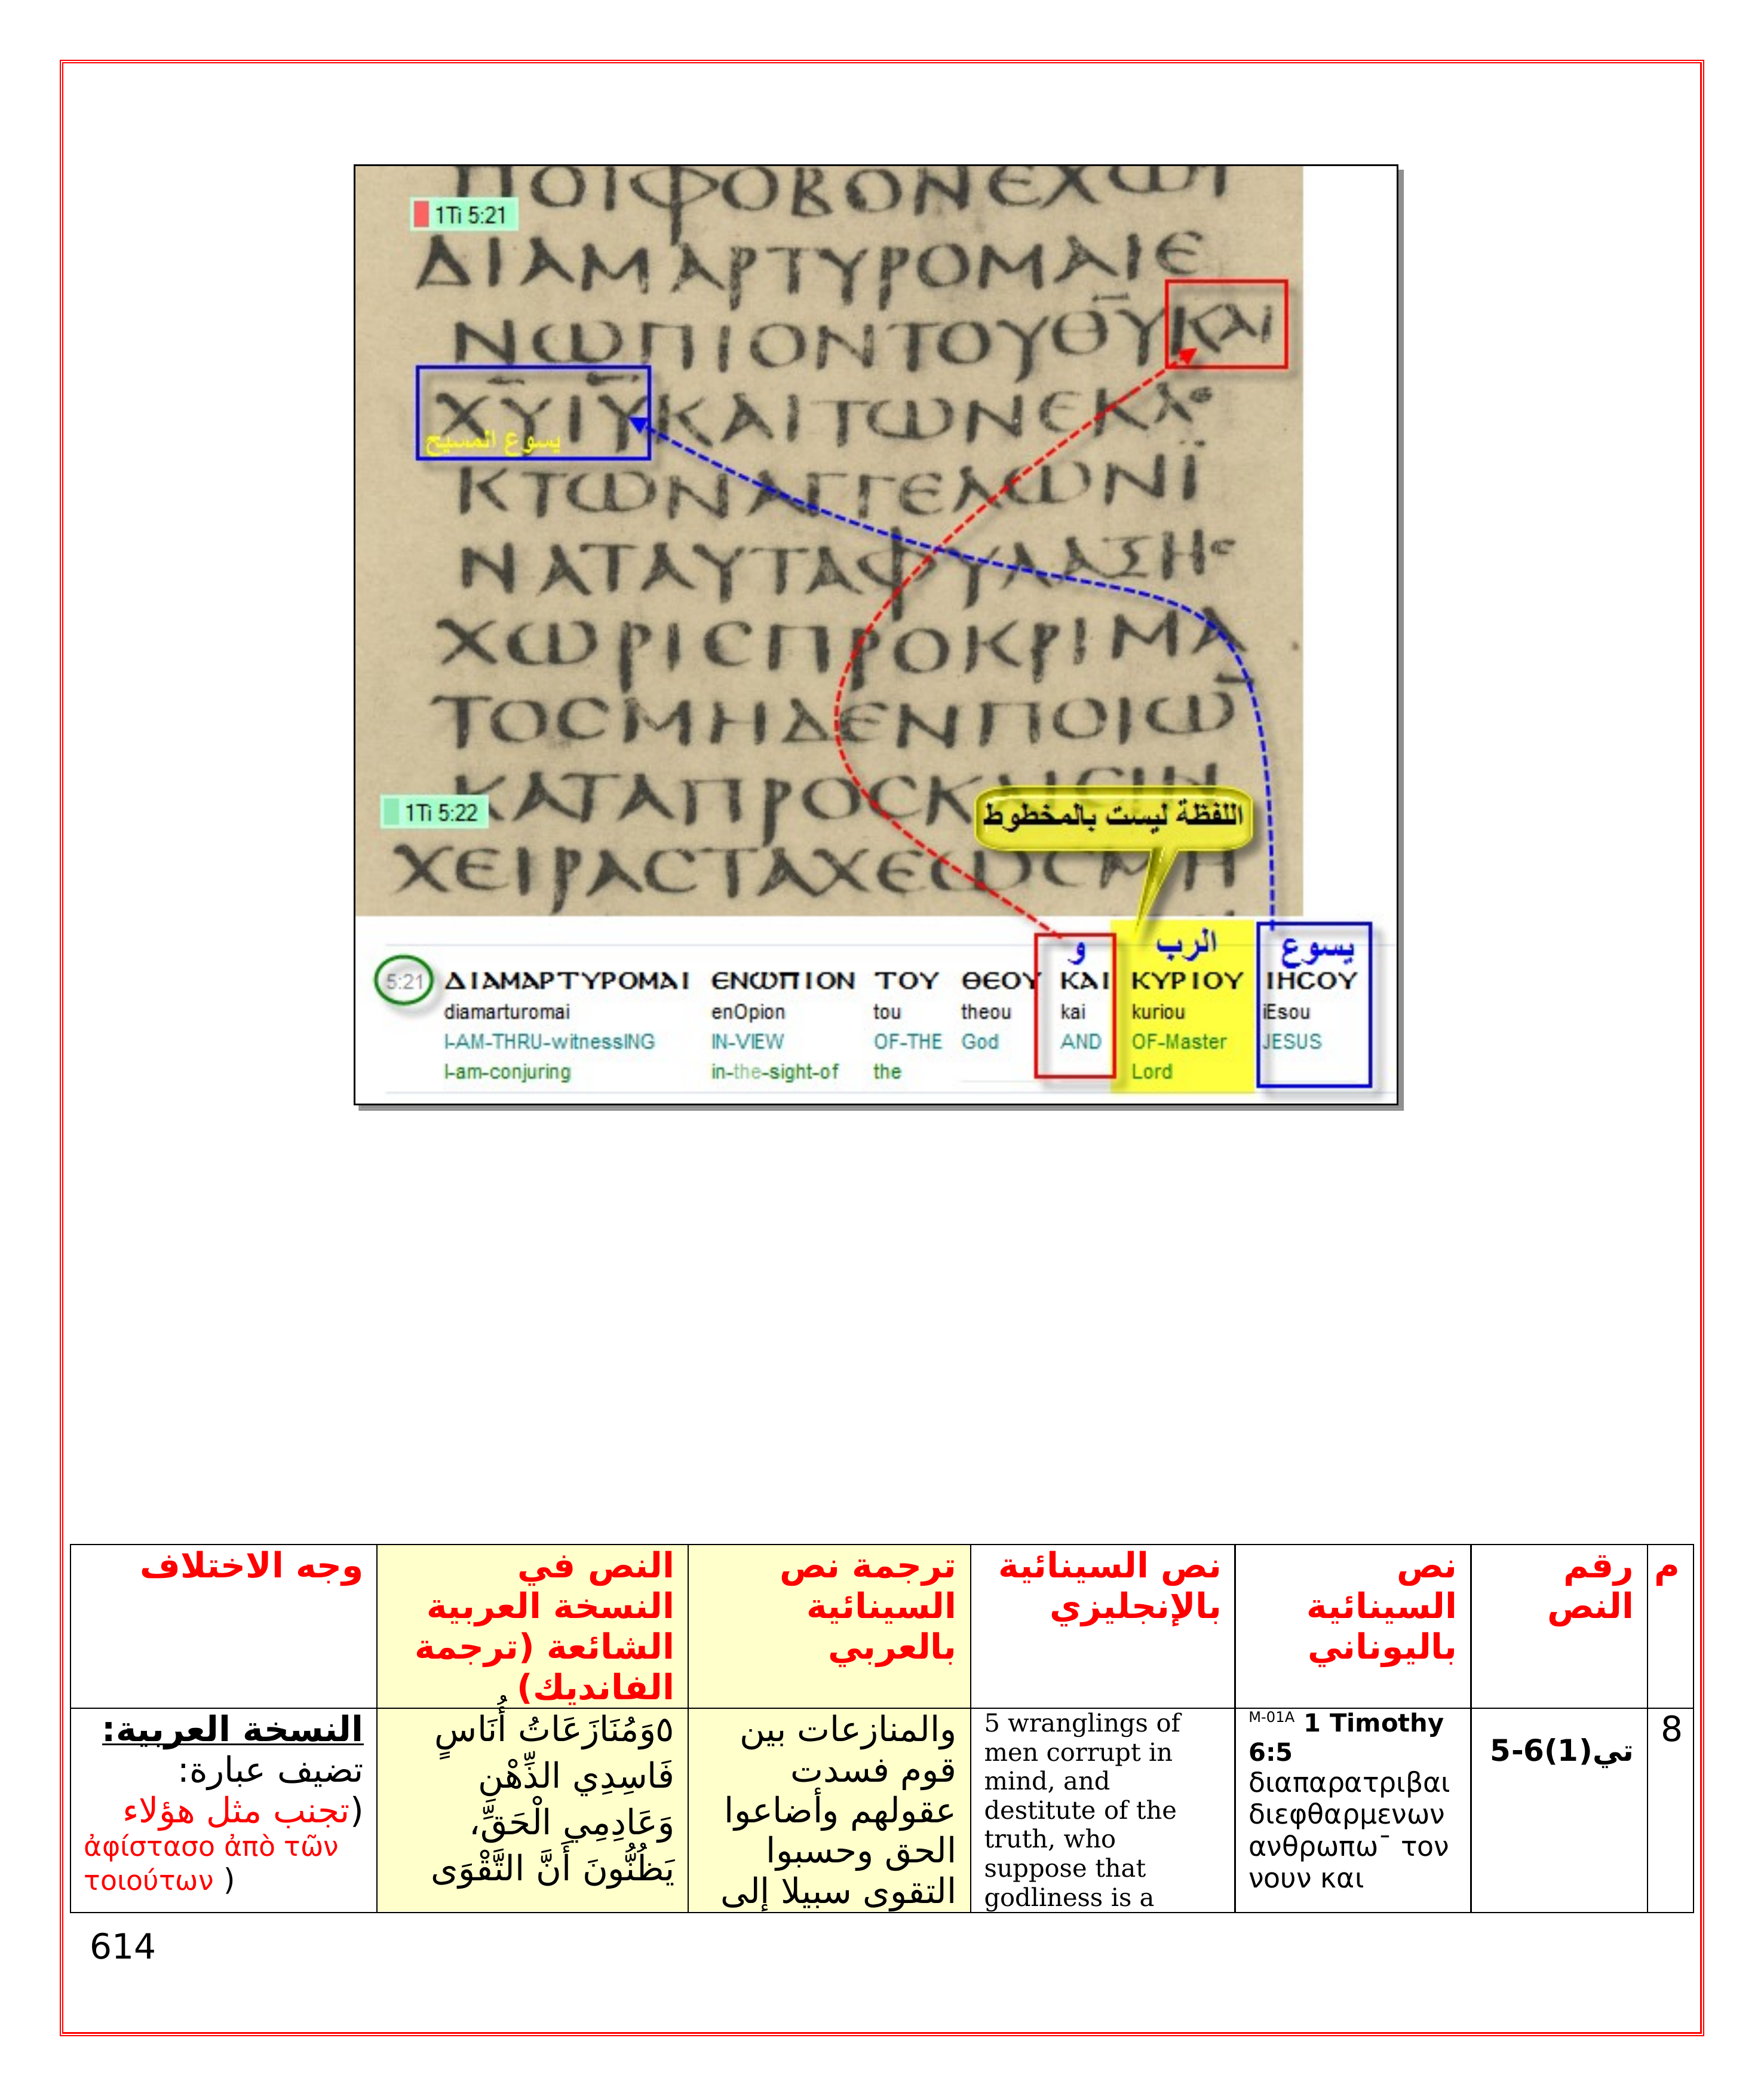 ΠΟΙΦΟΒΟΝΕΧΩΙ
1Ti 5:21
ΔΙΑΜΑΡΤΥΡΟΜΑΙΕ
ΝΩΠΙΟΝΤΟΥΘ̅Υ̅ΚΑΙ
Χ̅Υ̅Ι̅Υ̅ΚΑΙΤΩΝΕΚΛΕ
يسوع المسيح
ΚΤΩΝΑΓΓΕΛΩΝΪ
ΝΑΤΑΥΤΑΦΥΛΑΞΗϹ
ΧΩΡΙϹΠΡΟΚΡΙΜΑ
ΤΟϹΜΗΔΕΝΠΟΙΩ̅
ΚΑΤΑΠΡΟϹΚΛΙϹΙΝ
1Ti 5:22
اللفظة ليست بالمخطوط
ΧΕΙΡΑϹΤΑΧΕΩϹΜΗ
و الرب يسوع
5:21 ΔΙΑΜΑΡΤΥΡΟΜΑΙ ΕΝΩΠΙΟΝ ΤΟΥ ΘΕΟΥ ΚΑΙ ΚΥΡΙΟΥ ΙΗϹΟΥ
diamarturomai enOpion tou theou kai kuriou iEsou
I-AM-THRU-witnessING IN-VIEW OF-THE God AND OF-Master JESUS
I-am-conjuring in-the-sight-of the Lord
م
رقم
النص
نص
السينائية
باليوناني
نص السينائية
بالإنجليزي
ترجمة نص
السينائية
بالعربي
النص في
النسخة العربية
الشائعة (ترجمة
الفانديك)
وجه الاختلاف
8
تي(1)6-5
M-01A 1 Timothy
6:5
διαπαρατριβαι
διεφθαρμενων
ανθρωπω¯ τον
νουν και
5 wranglings of
men corrupt in
mind, and
destitute of the
truth, who
suppose that
godliness is a
والمنازعات بين
قوم فسدت
عقولهم وأضاعوا
الحق وحسبوا
التقوى سبيلا إلى
٥وَمُنَازَعَاتُ أُنَاسٍ
فَاسِدِي الذِّهْنِ
وَعَادِمِي الْحَقِّ،
يَظُنُّونَ أَنَّ التَّقْوَى
النسخة العربية:
تضيف عبارة:
(تجنب مثل هؤلاء
ἀφίστασο ἀπὸ τῶν
τοιούτων )
614